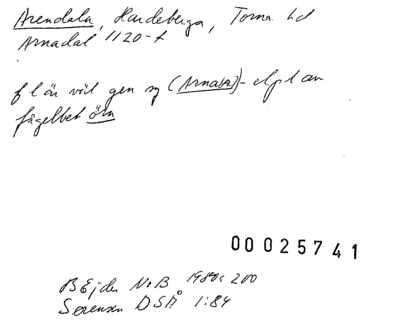 Arendala, Hardeberga, Torna hd
Arnadal 1120-t
f l är väl gen sg (Arna(r))- el pl av
fågelbet örn
00025741
B Ejder NoB 1980s 200
Sørensen DSÅ 1:84